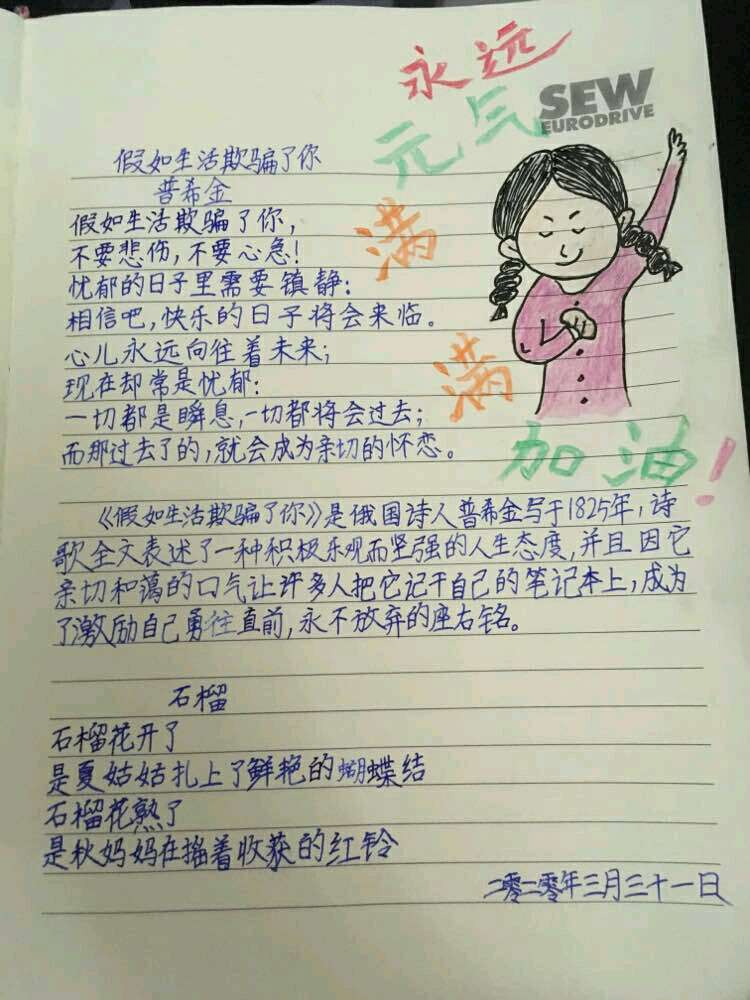 永远
元气
SEW
EURODRIVE
满
满
加油！
假如生活欺骗了你
普希金
假如生活欺骗了你，
不要悲伤，不要心急！
忧郁的日子里需要镇静：
相信吧，快乐的日子将会来临。
心儿永远向往着未来；
现在却常是忧郁：
一切都是瞬息，一切都将会过去；
而那过去了的，就会成为亲切的怀恋。
《假如生活欺骗了你》是俄国诗人普希金写于1825年，诗
歌全文表述了一种积极乐观而坚强的人生态度，并且因它
亲切和蔼的口气让许多人把它记于自己的笔记本上，成为
了激励自己勇往直前，永不放弃的座右铭。
石榴
石榴花开了
是夏姑姑扎上了鲜艳的蝴蝶结
石榴花熟了
是秋妈妈在摇着收获的红铃
二零二零年三月三十一日